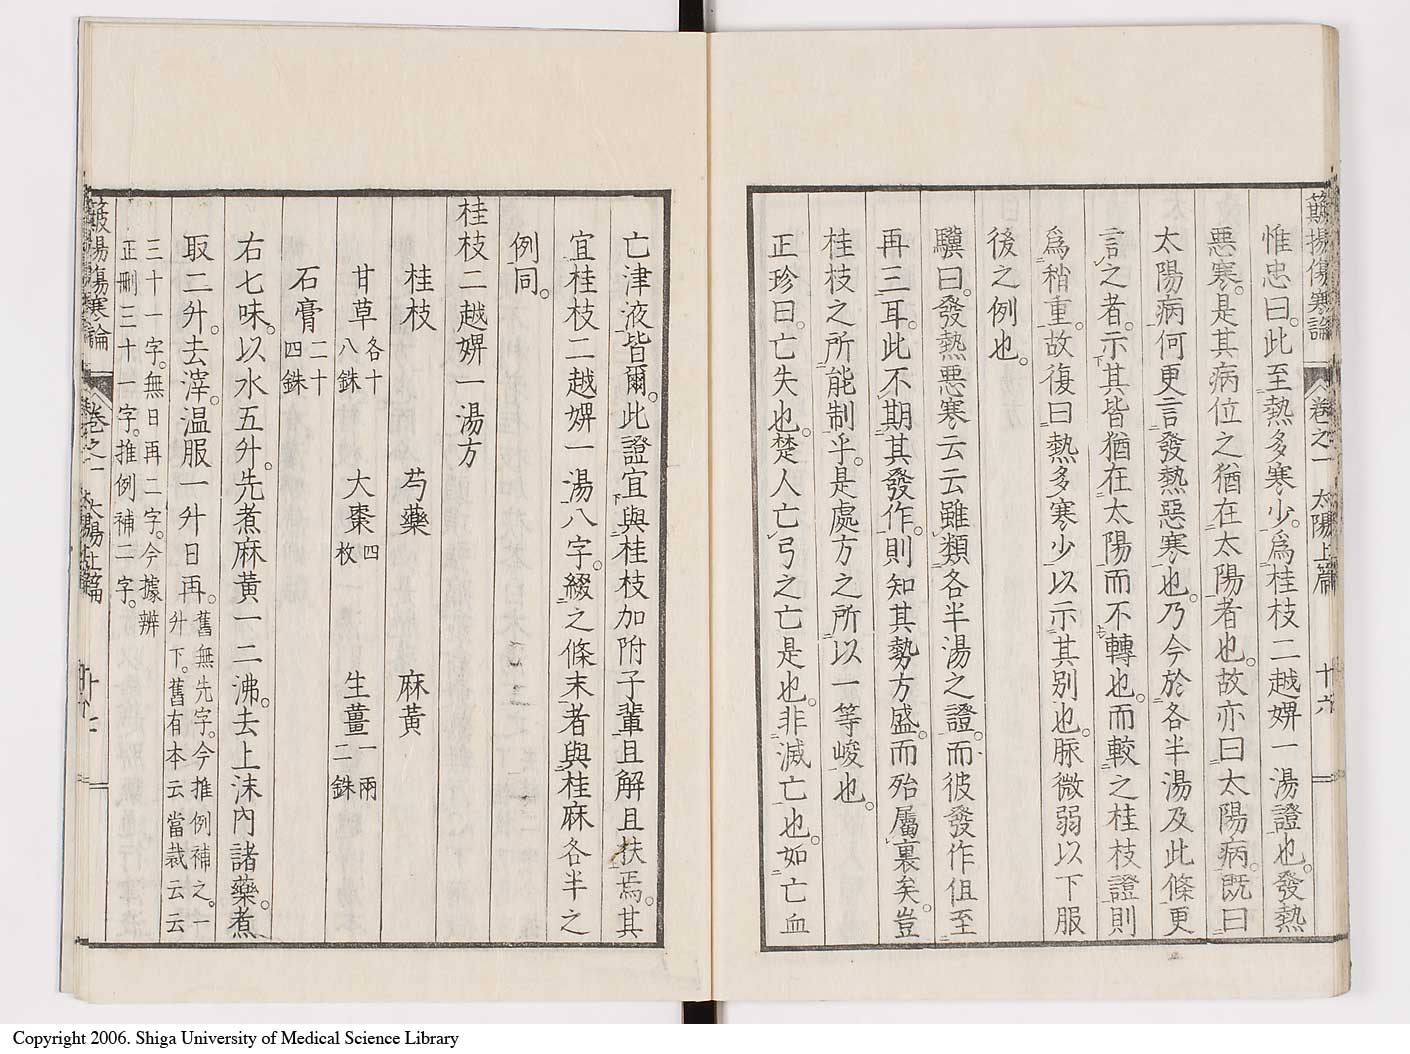 簸揚傷寒論 卷之一 太陽上篇 十六
惟忠曰。此至熱多寒少。爲桂枝二越婢一湯證也。發熱
惡寒。是其病位之猶在太陽者也。故亦曰太陽病。既曰
太陽病何更言發熱惡寒也。乃今於各半湯及此條更
言之者。示其皆猶在太陽而不轉也。而較之桂枝證則
爲稍重。故復曰熱多寒少以示其別也。脉微弱以下服
後之例也。
驥曰。發熱惡寒云云雖類各半湯之證。而彼發作但至
再三耳。此不期其發作。則知其勢方盛。而殆屬裏矣。豈
桂枝之所能制乎。是處方之所以一等峻也。
正珍曰。亡失也。楚人亡弓之亡是也。非滅亡也。如亡血
亡津液皆爾。此證宜與桂枝加附子輩且解且扶焉。其
宜桂枝二越婢一湯八字。綴之條末者與桂麻各半之
例同。
桂枝二越婢一湯方
桂枝 芍藥 麻黃
甘草各十八銖 大棗四枚 生薑一兩二銖
石膏二十四銖
右七味。以水五升。先煮麻黃一二沸。去上沫內諸藥。煮
取二升。去滓。溫服一升日再。舊無先字。今推例補之。一
升下。舊有本云當裁云云
三十一字。無日再二字。今據辨
正刪三十一字。推例補二字。
簸揚傷寒論 卷之一 太陽上篇
Copyright 2006. Shiga University of Medical Science Library